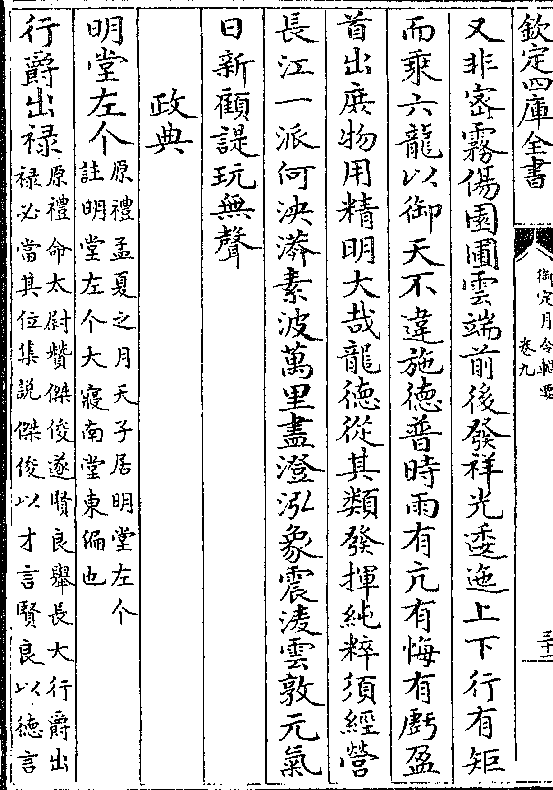 欽定四庫全書
御定月令輯要
卷九
三十二
又非密霧傷園圃雲端前後發祥光逶迤上下行有矩
而乘六龍以御天不違施德普時雨有亢有悔有虧盈
首出庶物用精明大哉龍德從其類發揮純粹須經營
長江一派何泱漭素波萬里盡澄泓象震凌雲敦元氣
日新顧諟玩無聲
政典
明堂左个
原禮孟夏之月天子居明堂左个
註明堂左个大寢南堂東偏也
行爵出禄
原禮命太尉贊傑俊遂賢良舉長大行爵出
禄必當其位集説傑俊以才言賢良以德言